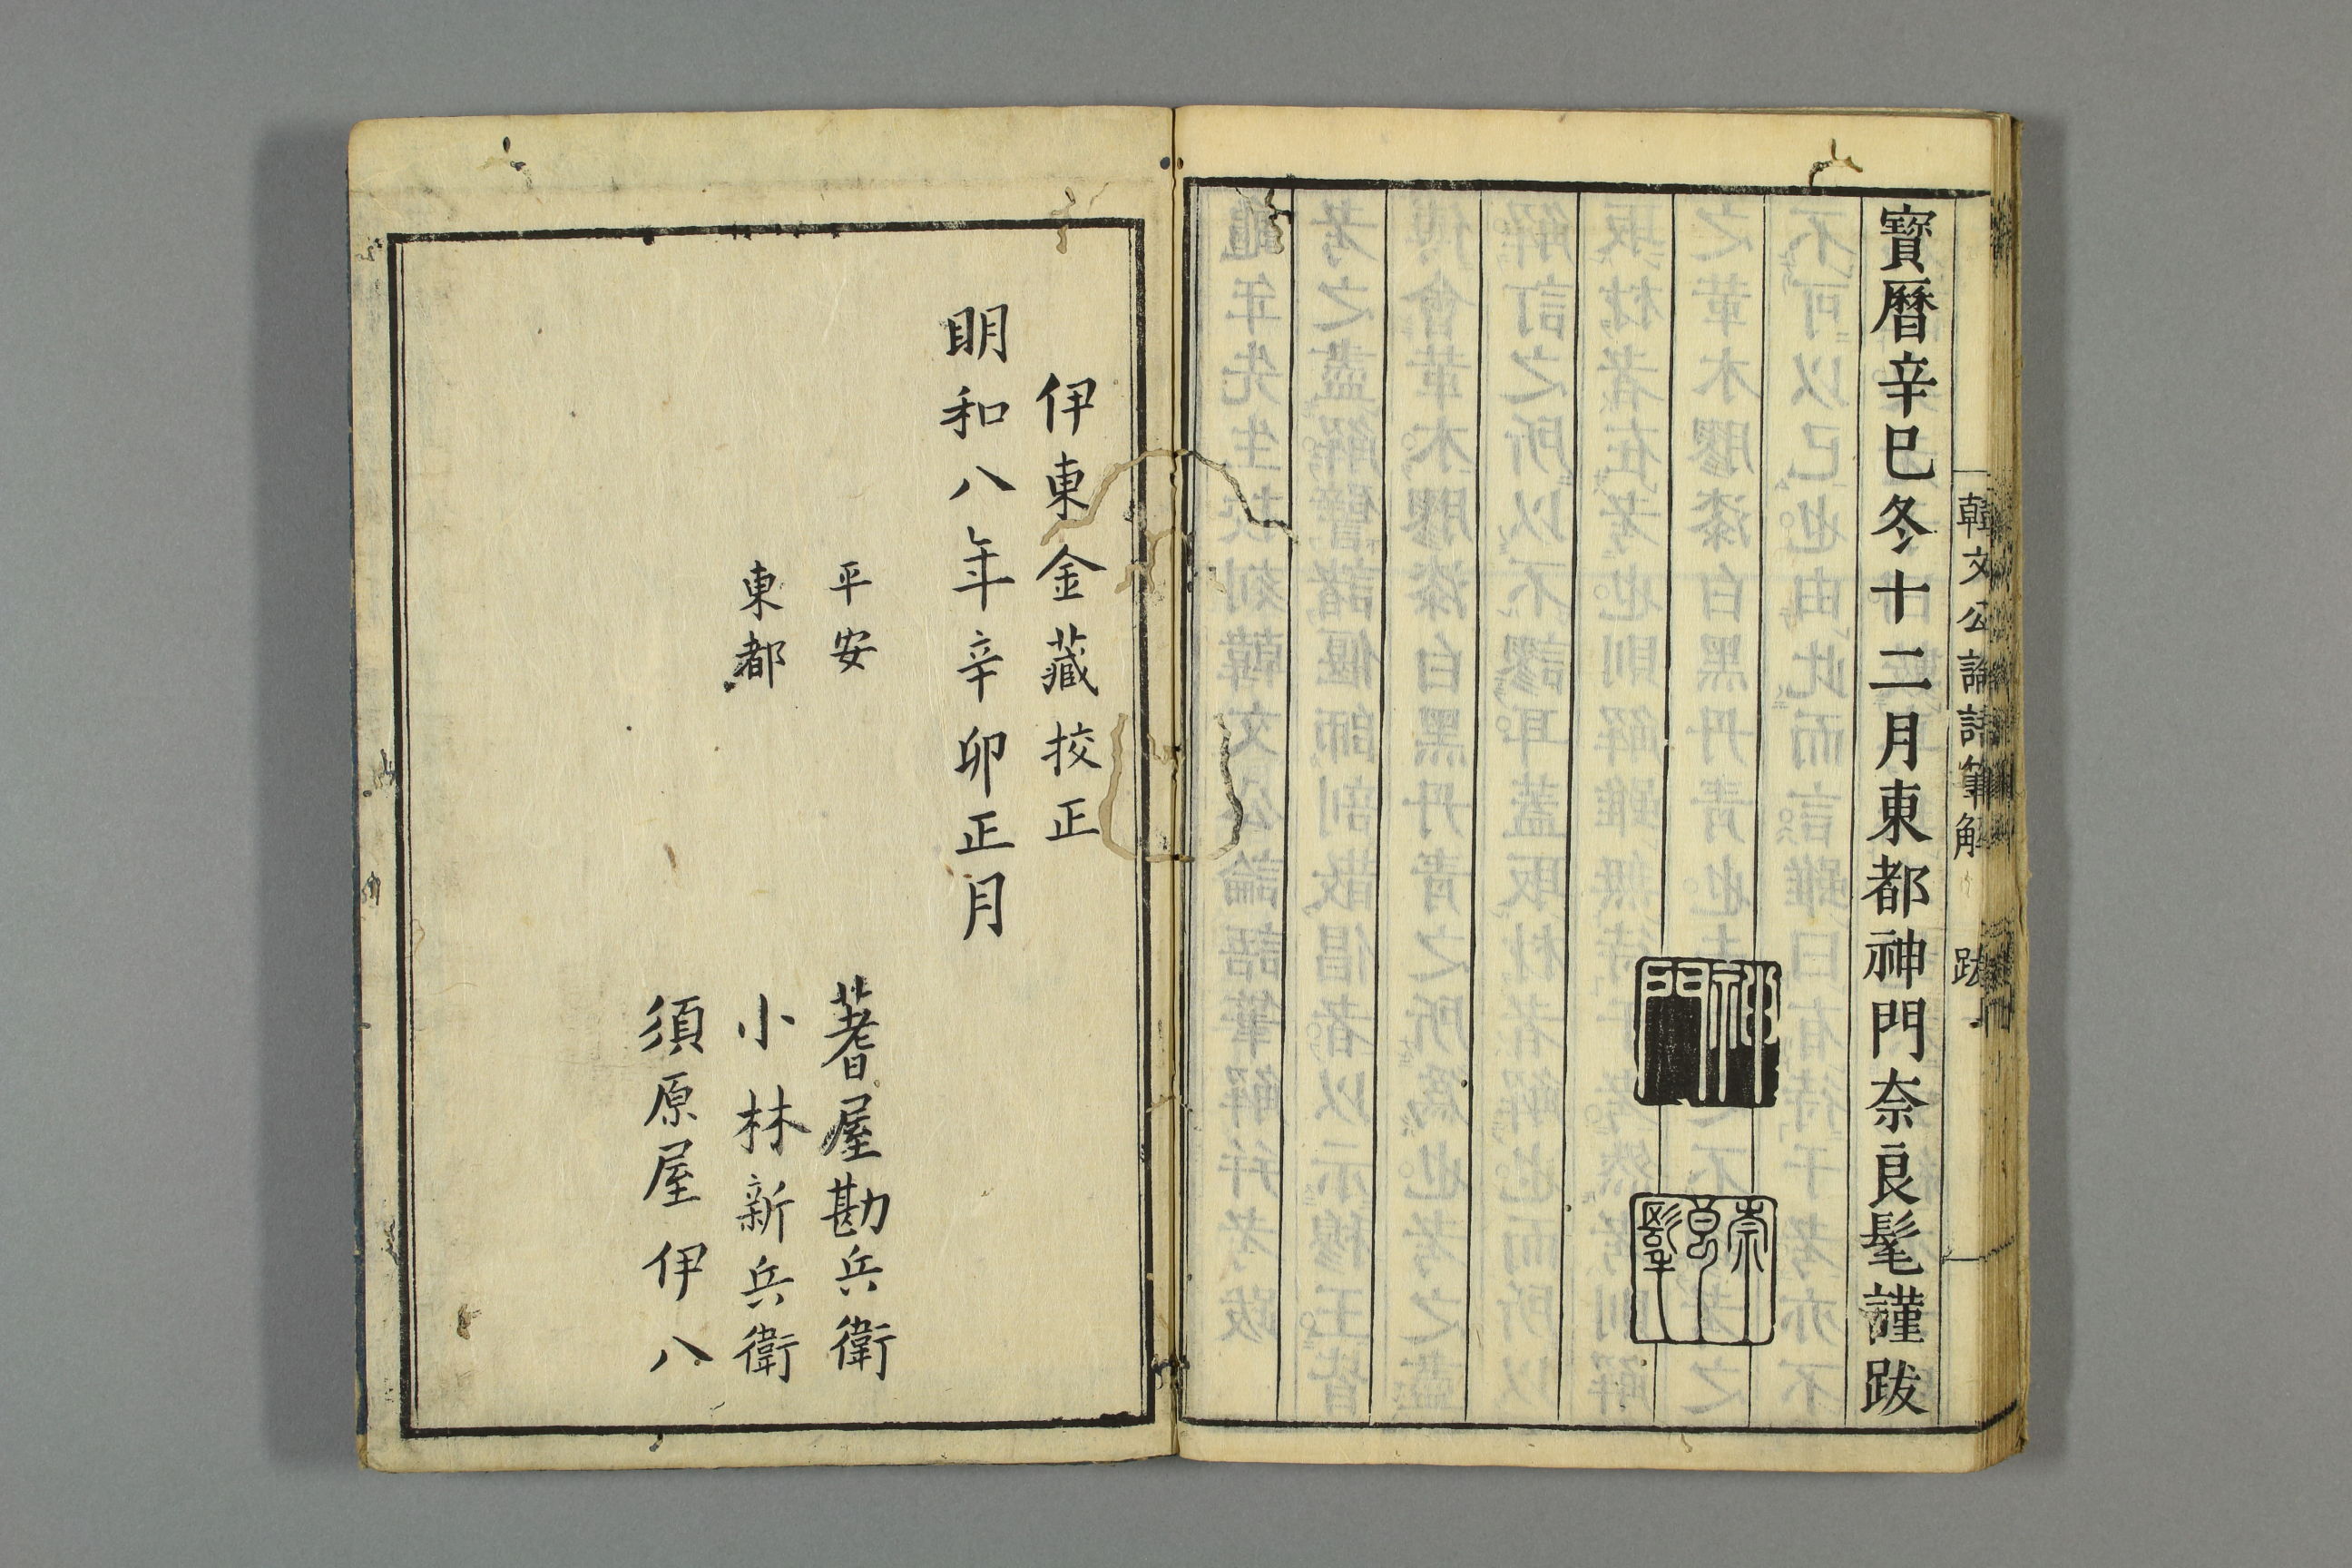 韓文公論語筆解 跋
寶曆辛巳冬十二月東都神門奈良髦謹跋
神門
奈良髦
伊東金藏挍正
明和八年辛卯正月
平安 蓍屋勘兵衛
東都 小林新兵衛
須原屋伊八